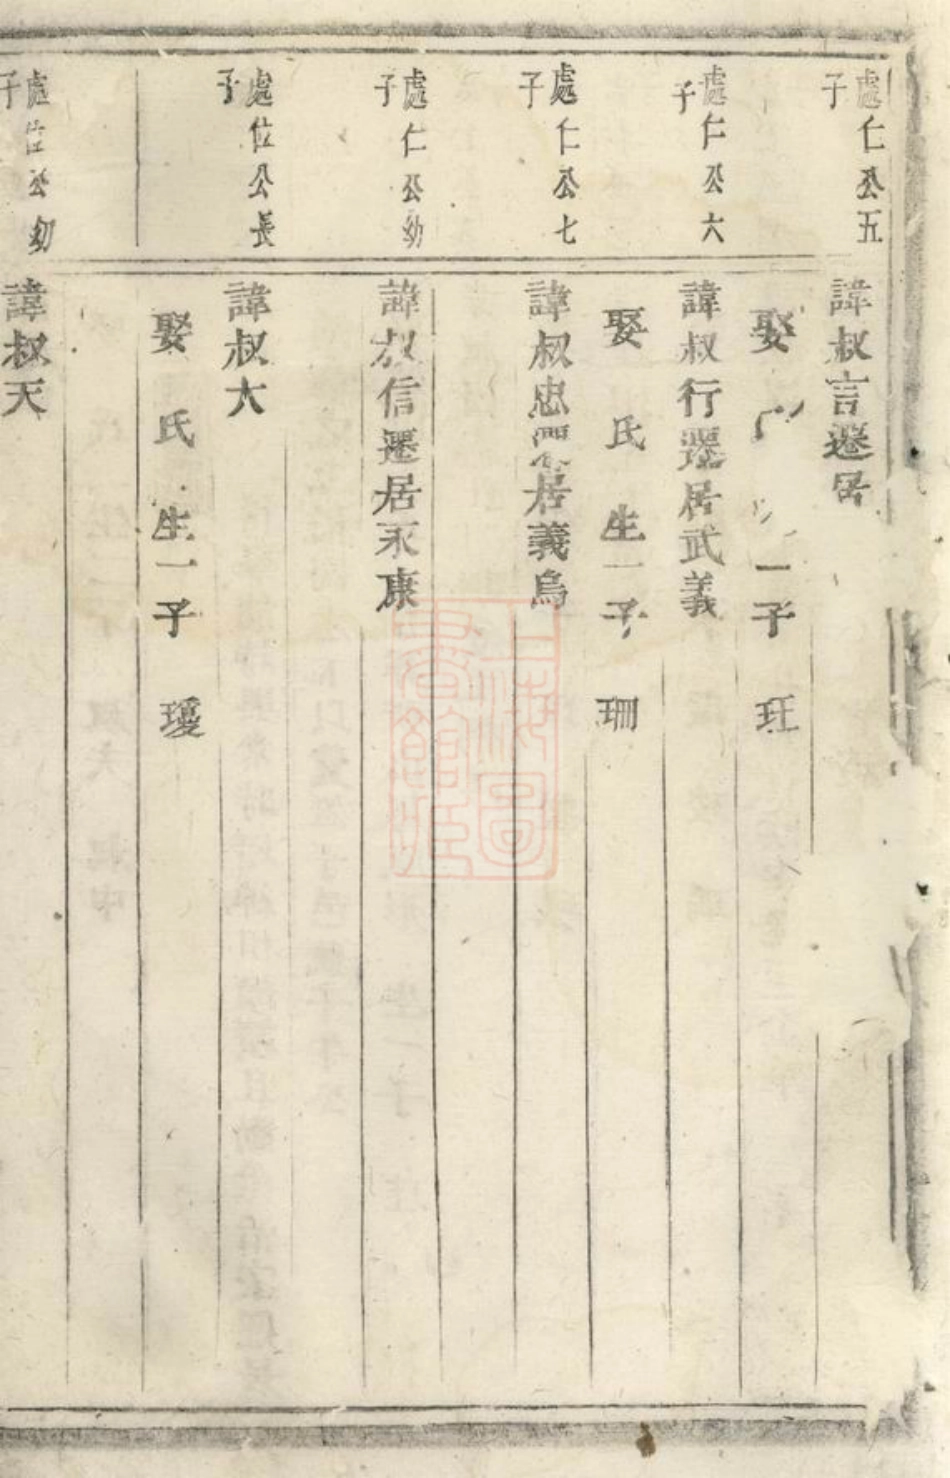 處仁公五子
諱叔言遷居
娶 一子 玨
處仁公六子
諱叔行遷居武義
娶 氏 生一子 珊
處仁公七子
諱叔忠遷居義烏
處仁公幼子
諱叔信遷居永康
處位公長子
諱叔大
娶 氏 生一子 瓊
處位公幼子
諱叔天
上海圖書館藏